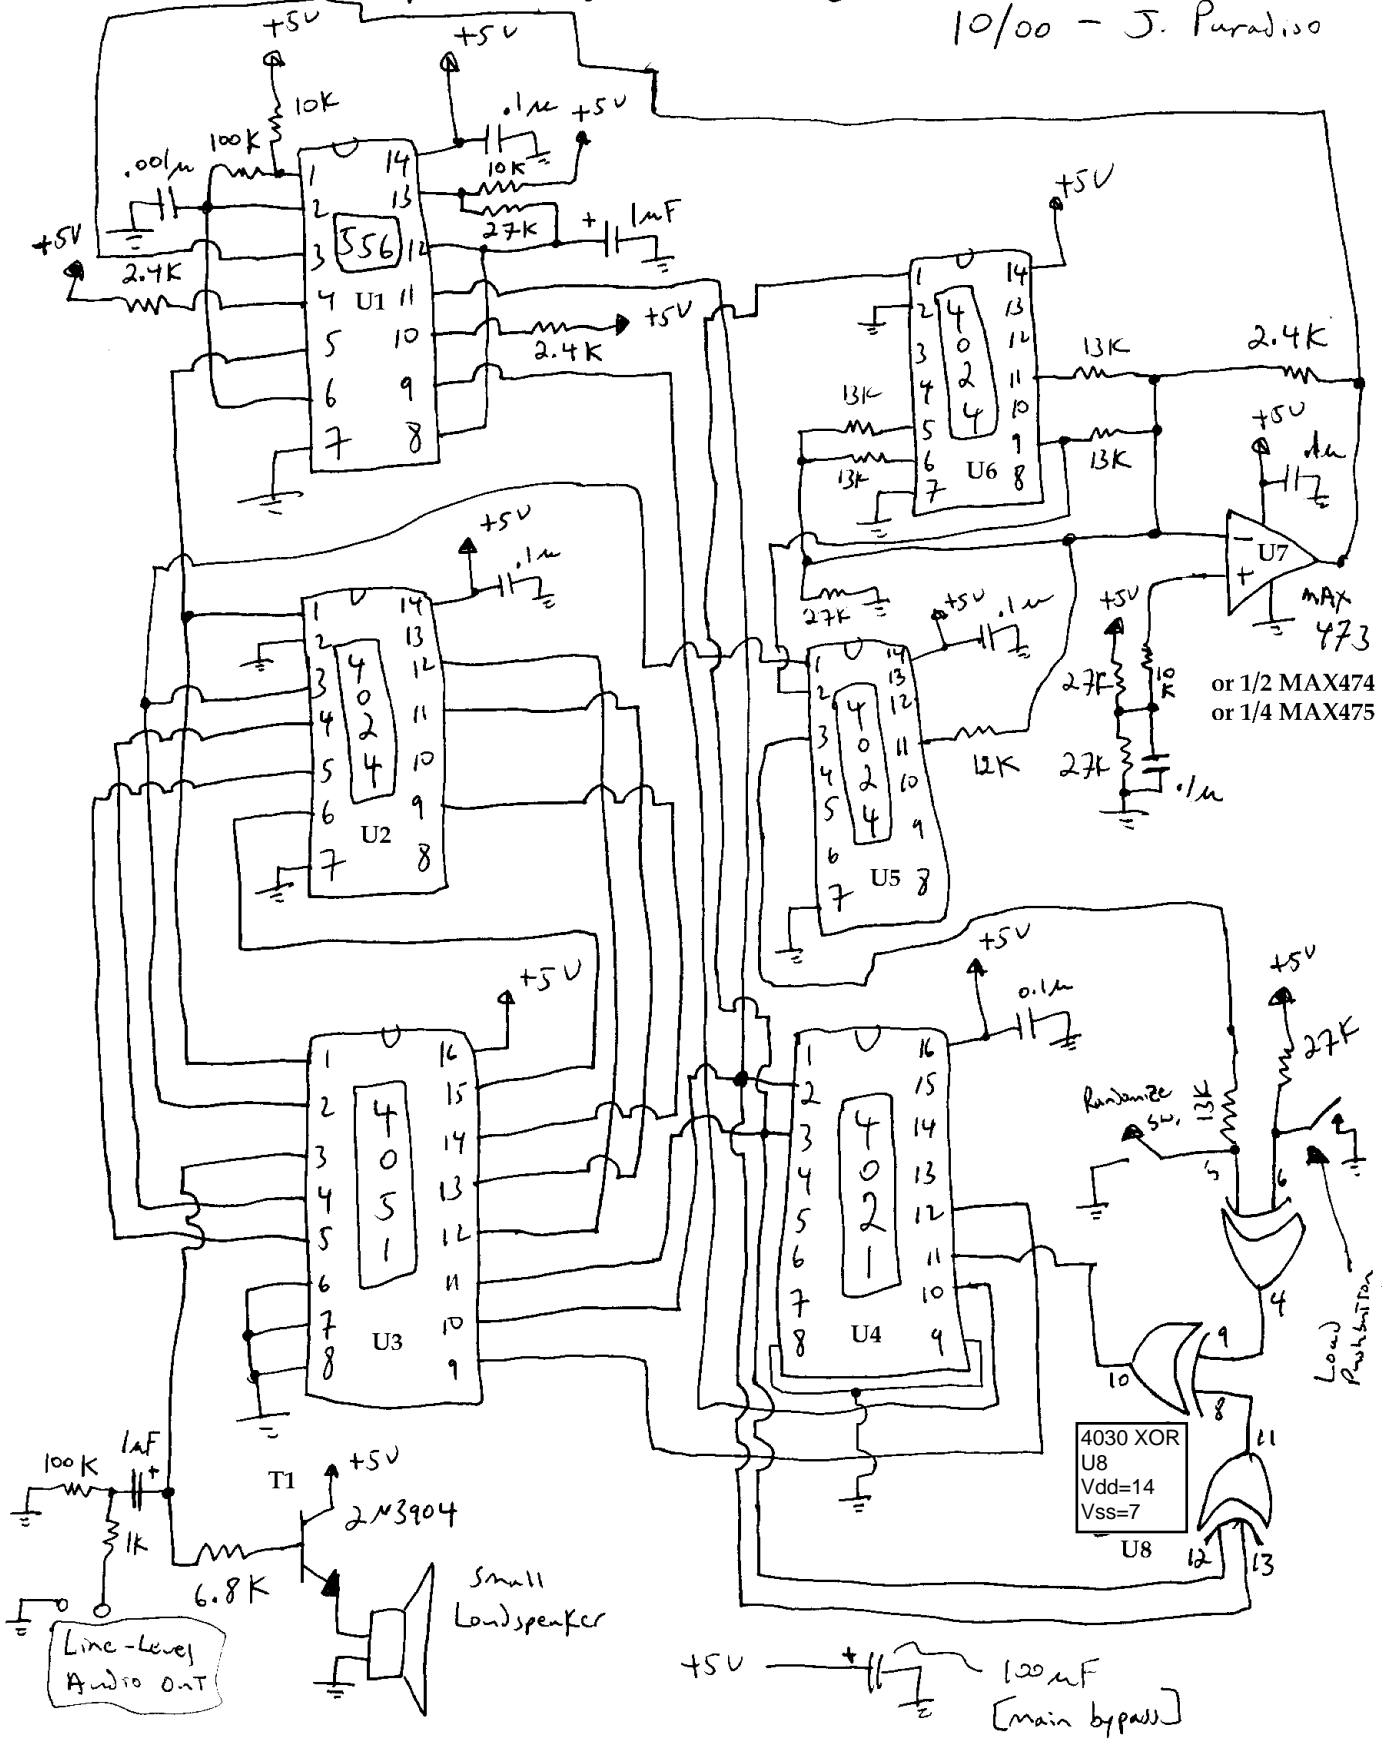 10/00 - J. Paradiso
+5V
+5V
10K
.1u
+5V
100K
.001u
10K
27K
+ 1uF
+5V
2.4K
1
2
3
4
5
6
7
556
U1
14
13
12
11
10
9
8
+5V
2.4K
+5V
1
2
3
4
5
6
7
4024
U6
14
13
12
11
10
9
8
13K
13K
13K
13K
2.4K
+5V
.1u
27K
−
+
U7
MAX
473
or 1/2 MAX474
or 1/4 MAX475
+5V
10K
27K
27K
.1u
+5V
.1u
1
2
3
4
5
6
7
4024
U2
14
13
12
11
10
9
8
+5V
.1u
1
2
3
4
5
6
7
4024
U5
14
13
12
11
10
9
8
12K
+5V
1
2
3
4
5
6
7
8
4051
U3
16
15
14
13
12
11
10
9
+5V
0.1u
1
2
3
4
5
6
7
8
4021
U4
16
15
14
13
12
11
10
9
+5V
27K
Randomize
SW.
13K
5
6
4
Load
Pushbutton
9
10
8
11
12
13
4030 XOR
U8
Vdd=14
Vss=7
U8
100K
1uF
+
1K
6.8K
T1
+5V
2N3904
Small
Loudspeaker
Line-Level
Audio Out
+5V
+
100uF
[main bypass]